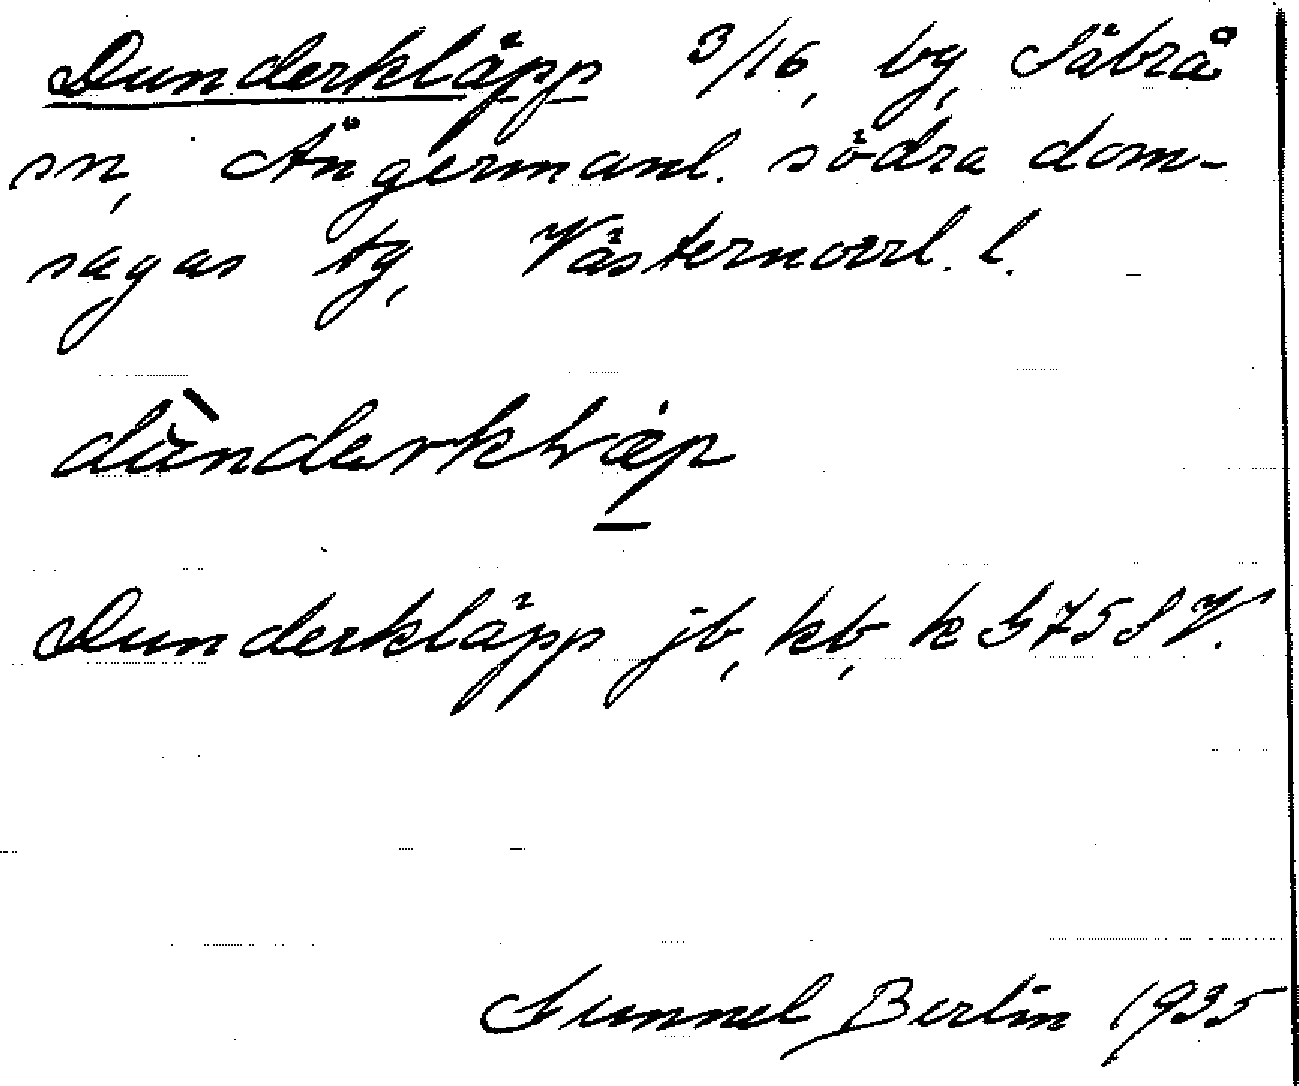 Dunderkläpp 3/16, by, Säbrå
sn, Ångermanl. södra dom-
sagas tg, Västernorrl. l.
dùnderklæp
Dunderkläpp jb, kb, k G75SV.
Gunnel Berlin 1935